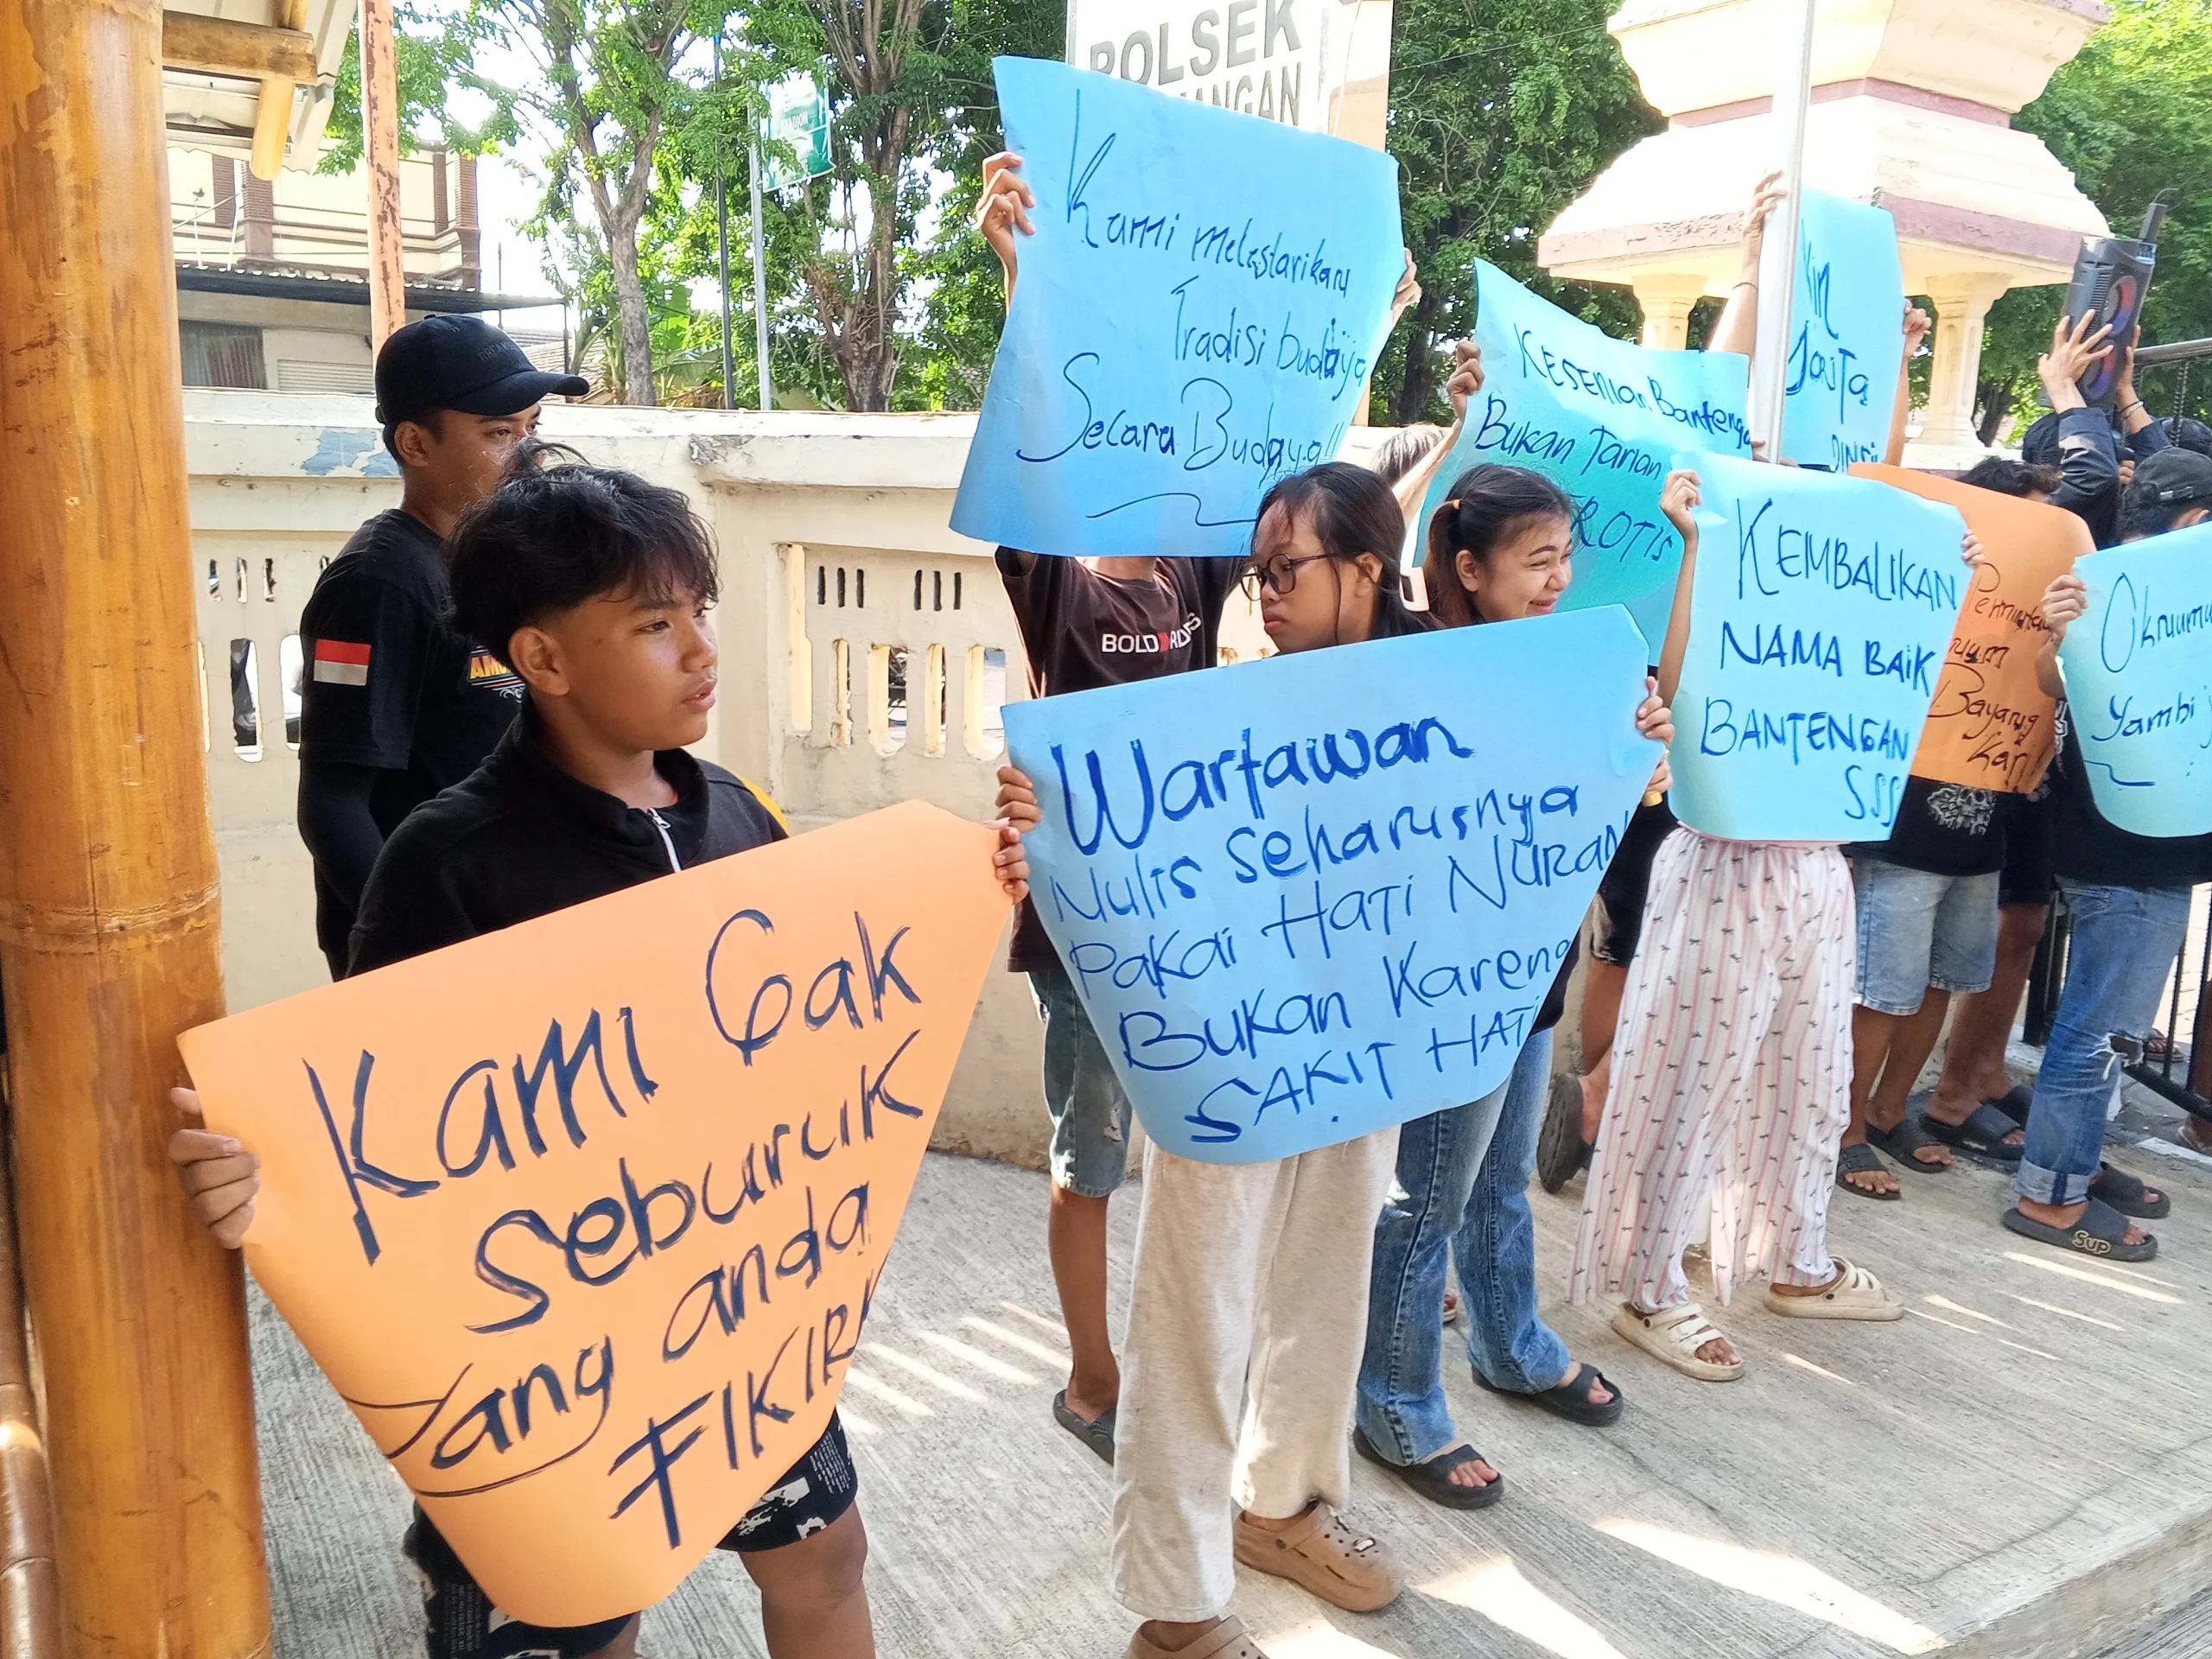 POLSEK
Kami melestarikan
Tradisi budaya
Secara Budaya!!
KESENian Bantengan
Bukan Tarian
EROTIS
KEMBALIKAN
NAMA BAIK
BANTENGAN
SSS
Bayang
Kari
Oknum
Yambi
BOLD RDERS
Wartawan
Nulis seharusnya
Pakai Hati NURANi
Bukan Karena
SAKIT HATI
Kami Gak
seburuk
yang anda
FIKIR!
Sup